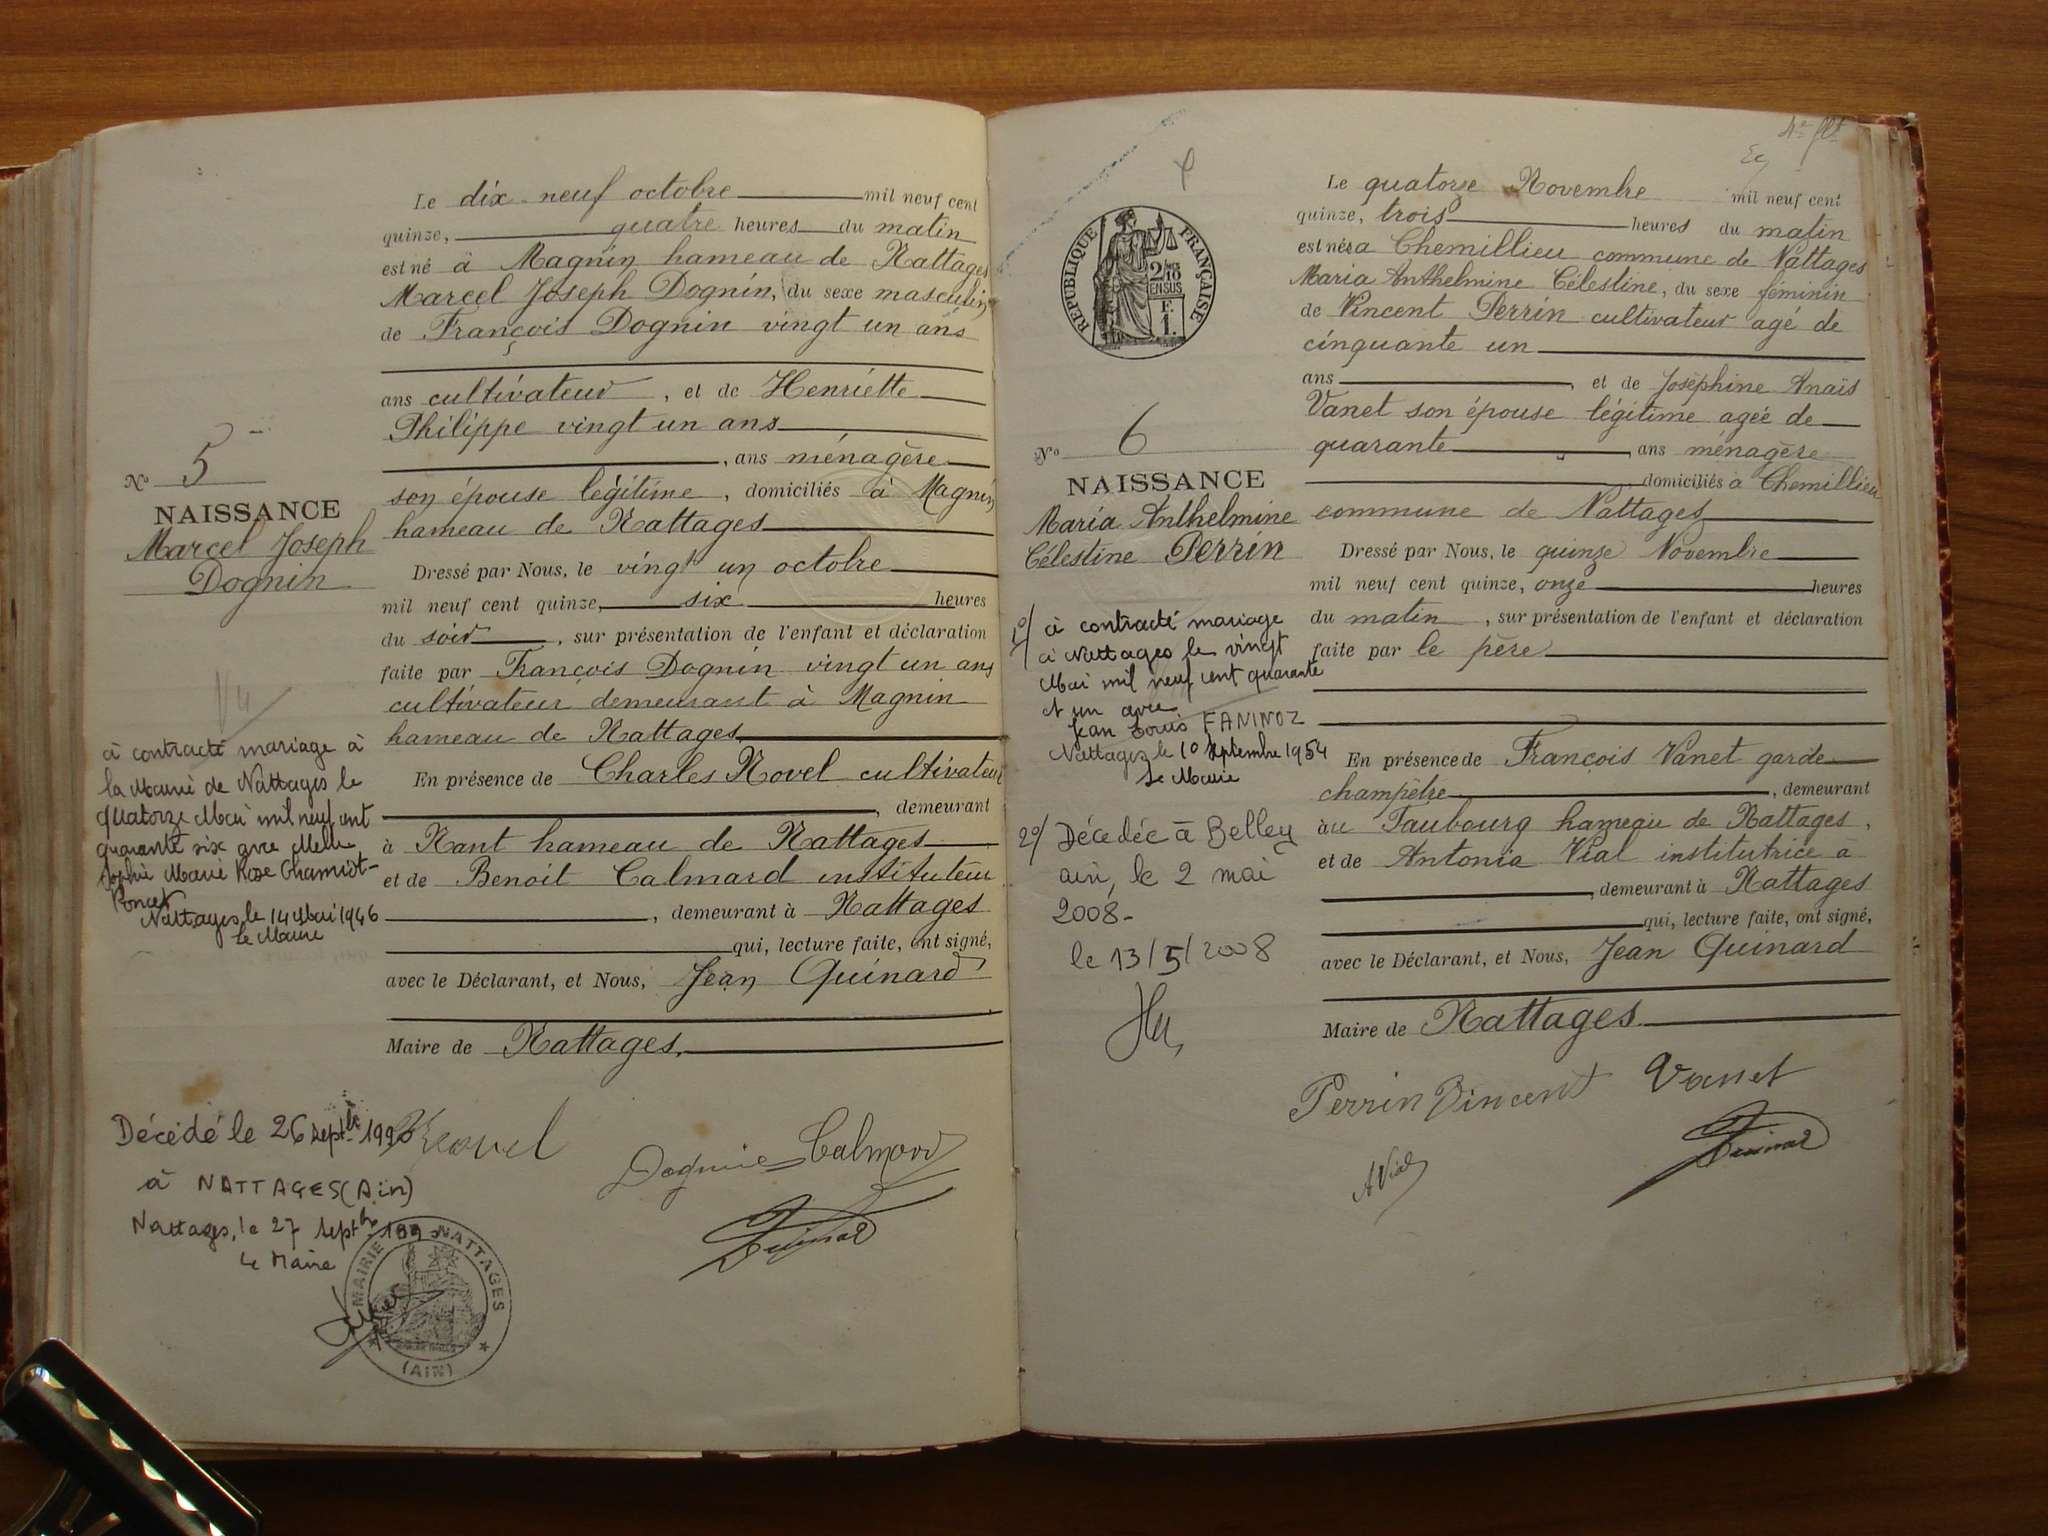 Le dix-neuf octobre mil neuf cent
quinze, quatre heures du matin
est né à Magnin hameau de Nattages
Marcel Joseph Dognin, du sexe masculin
de François Dognin vingt un ans
ans cultivateur, et de Henriette
Philippe vingt un ans
, ans ménagère
son épouse légitime, domiciliés à Magnin
hameau de Nattages
Dressé par Nous, le vingt un octobre
mil neuf cent quinze, six heures
du soir, sur présentation de l'enfant et déclaration
faite par François Dognin vingt un ans
cultivateur demeurant à Magnin
hameau de Nattages
En présence de Charles Novel cultivateur
, demeurant
à Nant hameau de Nattages
et de Benoit Calmard instituteur
, demeurant à Nattages
qui, lecture faite, ont signé,
avec le Déclarant, et Nous, Jean Quinard
Maire de Nattages.
No 5
NAISSANCE
Marcel Joseph
Dognin
a contracté mariage à
la Mairie de Nattages le
quatorze Mai mil neuf cent
quarante six avec Melle
Sophie Marie Rose Chamiot-
Poncet
Nattages, le 14 Mai 1946
Le Maire
Décédé le 26 septbre 1990
à NATTAGES (Ain)
Nattages, le 27 septbre
Le Maire
MAIRIE DE NATTAGES
(AIN)
Novel
Dognin Calmard
Quinard
4e flt
RÉPUBLIQUE FRANÇAISE
2/10
EN SUS
F.
1.
Le quatorze Novembre mil neuf cent
quinze, trois heures du matin
est née a Chemillieu commune de Nattages
Maria Anthelmine Célestine, du sexe féminin
de Vincent Perrin cultivateur agé de
cinquante un
ans, et de Joséphine Anaïs
Vanet son épouse légitime agée de
quarante, ans ménagère
domiciliés a Chemillieu
commune de Nattages
Dressé par Nous, le quinze Novembre
mil neuf cent quinze, onze heures
du matin, sur présentation de l'enfant et déclaration
faite par le père
En présence de François Vanet garde
champêtre, demeurant
au Faubourg hameau de Nattages,
et de Antonia Vial institutrice à
, demeurant à Nattages
qui, lecture faite, ont signé,
avec le Déclarant, et Nous, Jean Quinard
Maire de Nattages
No 6
NAISSANCE
Maria Anthelmine
Célestine Perrin
1o/ a contracté mariage
à Nattages le vingt
Mai mil neuf cent quarante
et un avec
Jean Louis FANINOZ
Nattages le 10 septembre 1954
Le Maire
2o/ Décédée à Belley
ain, le 2 mai
2008-
le 13/5/2008
Perrin Vincent Vanet
A Vial
Quinard